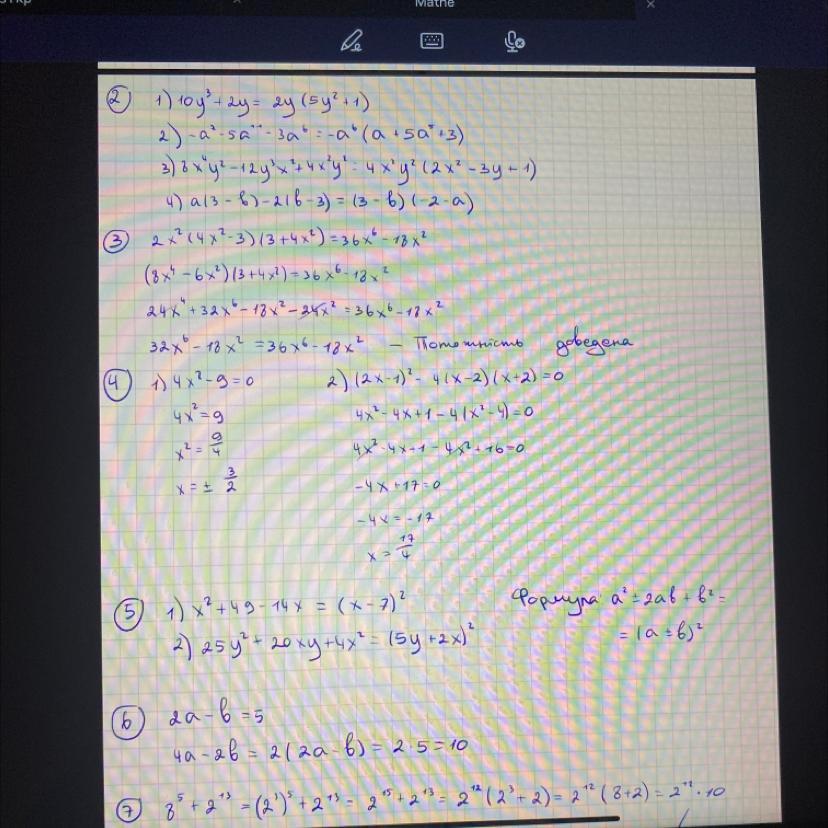 Mathe
② 1) 10y³ + 2y = 2y (5y² + 1)
2) -a² - 5a¹¹ - 3a⁶ = -a⁶ (a + 5a⁵ + 3)
3) 8x⁴y² - 12y³x² + 4x²y² = 4x²y² (2x² - 3y + 1)
4) a(3 - b) - 2(b - 3) = (3 - b) (-2 - a)
③ 2x² (4x² - 3) (3 + 4x²) = 36x⁶ - 18x²
(8x⁴ - 6x²) (3 + 4x²) = 36x⁶ - 18x²
24x⁴ + 32x⁶ - 18x² - 24x² = 36x⁶ - 18x²
32x⁶ - 18x² = 36x⁶ - 18x² — Тотожність доведена
④ 1) 4x² - 9 = 0 2) (2x - 1)² - 4(x - 2) (x + 2) = 0
4x² = 9 4x² - 4x + 1 - 4(x² - 4) = 0
x² = 9/4 4x² - 4x + 1 - 4x² + 16 = 0
x = ± 3/2 -4x + 17 = 0
-4x = -17
x = 17/4
⑤ 1) x² + 49 - 14x = (x - 7)² Формула a² ± 2ab + b² =
2) 25y² + 20xy + 4x² = (5y + 2x)² = (a ± b)²
⑥ 2a - b = 5
4a - 2b = 2(2a - b) = 2 · 5 = 10
⑦ 8⁵ + 2¹³ = (2³)⁵ + 2¹³ = 2¹⁵ + 2¹³ = 2¹² (2³ + 2) = 2¹² (8 + 2) = 2¹² · 10